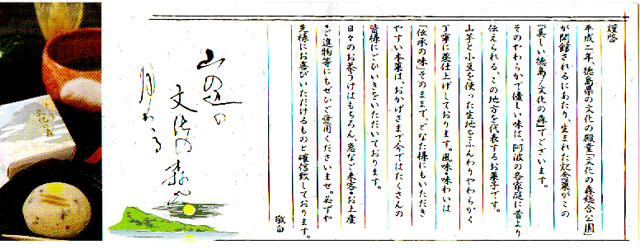 謹啓
平成二年、徳島県の文化の殿堂「文化の森総合公園」
が開館されるにあたり、生まれた記念菓がこの
「美しい徳島/文化の森」でございます。
そのやわらかで優しい味は、阿波の各家庭に昔より
伝えられる、この地方を代表するお菓子です。
山芋と小豆を使った生地をふんわりやわらかく
丁寧に蒸し仕上げしております。風味・味わいは
「伝承の味」そのままで、どなた様にもいただき
やすい本菓は、おかげさまで今ではたくさんの
皆様にごひいきをいただいております。
日々のお茶うけはもちろん、急なご来客・お土産
・ご進物等にもぜひご愛用くださいませ。必ずや
先様にお喜びいただけるものと確信致しております。
敬白
山の辺の
文化の森